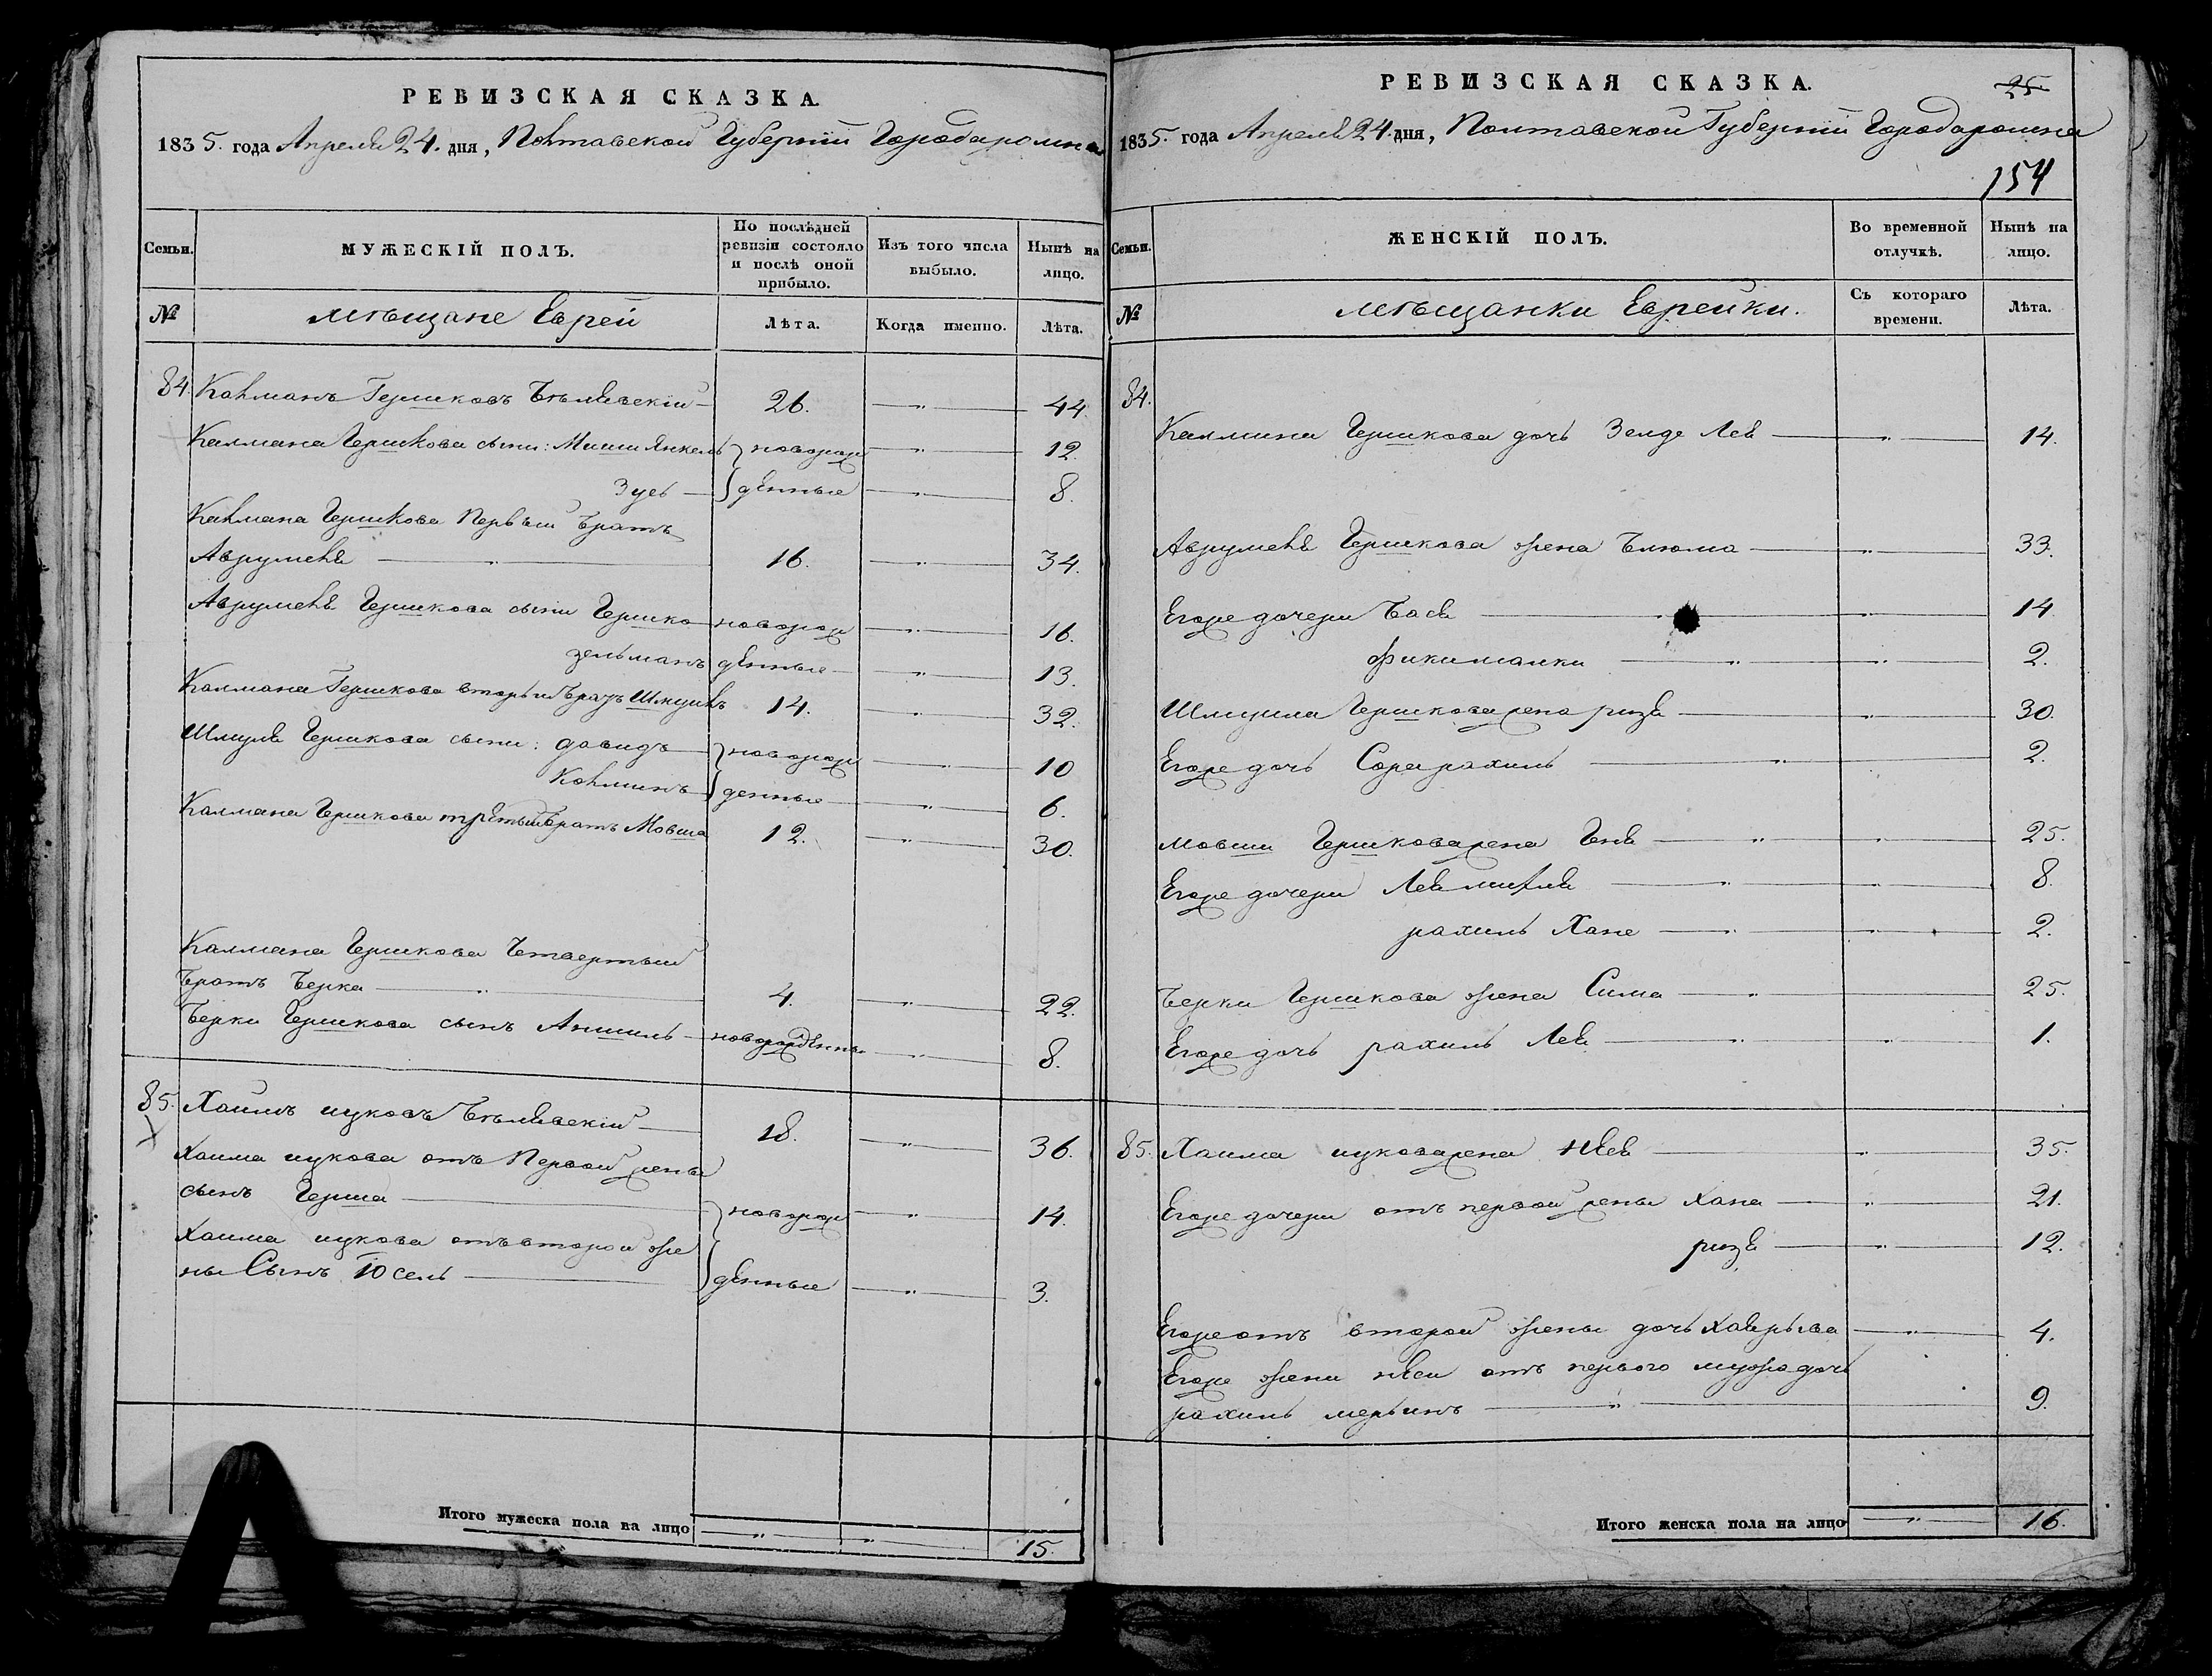 РЕВИЗСКАЯ СКАЗКА.
1835. года Апреля 24. дня, Полтавской Губернии Города ромна
Семьи.
МУЖЕСКІЙ ПОЛЪ.
По послѣдней ревизіи состояло и послѣ оной прибыло.
Изъ того числа выбыло.
Нынѣ на лицо.
№
мѣщане Еврей
Лѣта.
Когда именно.
Лѣта.
84. Калманъ Гершковъ Бѣлявскій 26. 44.
Калмана Гершкова сыни: Янкель новорож 12.
Зусь денные 8.
Калмана Гершкова Первый братъ
Аврумель 16. 34.
Аврумеля Гершкова сыни Гершко новорож 16.
зельманъ денные 13.
Калмана Гершкова вторый братъ Шмуиль 14. 32.
Шмуля Гершкова сыни: давидъ новорож 10
Калманъ денные 6.
Калмана Гершкова третый братъ Мовша 12. 30.
Калмана Гершкова Четвертый
братъ Берка 4. 22.
Берки Гершкова сынъ Аншиль новорожденны 8.
85. Хаимъ ицковъ Бѣлявскій 18. 36.
Хаима ицкова отъ Первой жены
сынъ Герша новорож 14.
Хаима ицкова отъ второй же
ны Сынъ Юсель денные 3.
Итого мужеска пола на лицо 15.
РЕВИЗСКАЯ СКАЗКА.
25.
1835. года Апреля 24. дня, Полтавской Губерніи Города ромна
154
Семьи.
ЖЕНСКІЙ ПОЛЪ.
Во временной отлучкѣ.
Нынѣ на лицо.
№
мѣщанки Еврейки.
Съ котораго времени.
Лѣта.
84.
Калмана Гершкова дочь Зелде Лея 14.
Аврумеля Гершкова жена Блюма 33.
Егоже дочери Бася 14
2.
Шмуила Гершкова жена ризя 30.
Егоже дочь Сорарахиль 2.
мовши Гершкова жена Геня 25.
Егоже дочери Лея 8.
рахиль Хане 2.
Берки Гершкова жена Сима 25.
Егоже дочь рахиль Лея 1.
85. Хаима ицкова жена Нѣся 35.
Егоже дочери отъ первой жены Хана 21.
ризя 12.
Егоже отъ второй жены дочь 4.
Егоже жени Нѣси отъ первого мужа дочь
рахиль 9.
Итого женска пола на лицо 16.